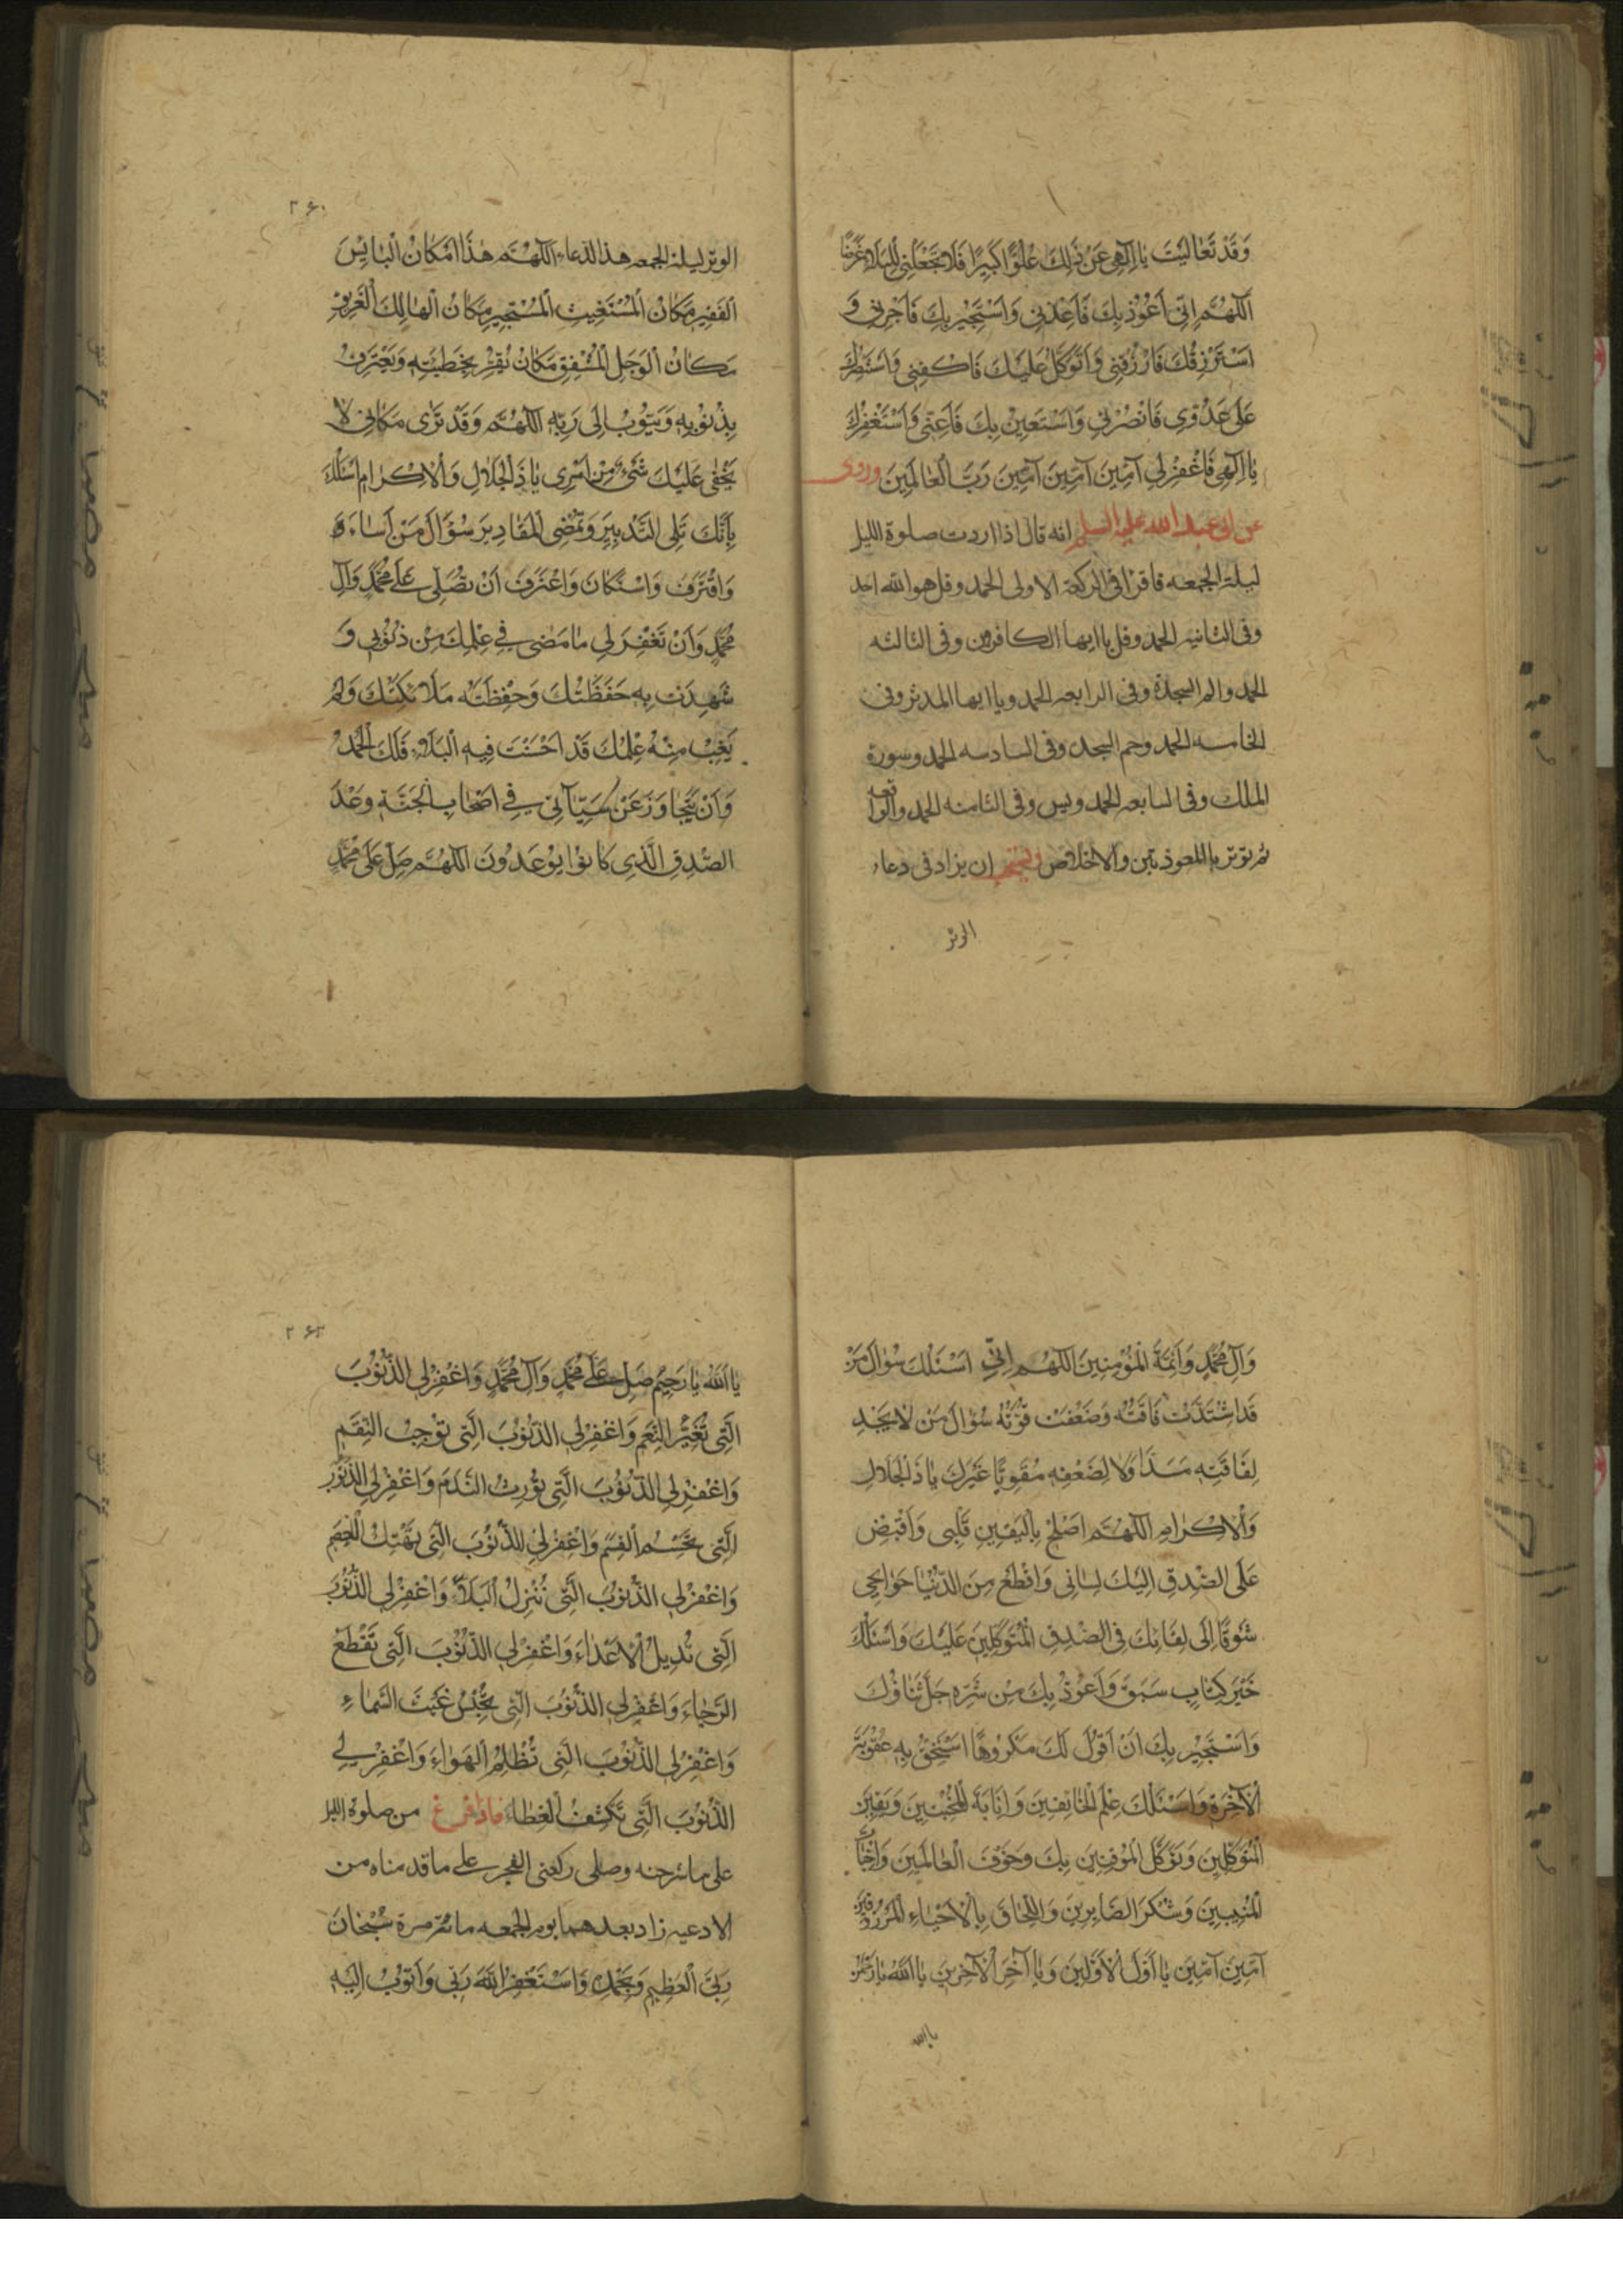 وَقَدْ تَعَالَيْتَ يَا اِلٰهِي عَنْ ذٰلِكَ عُلُوًّا كَبِيرًا فَلَا تَجْعَلْنِي لِلْبَلَاءِ غَرَضًا
اَللّٰهُمَّ اِنِّي اَعُوذُ بِكَ فَاَعِذْنِي وَاَسْتَجِيرُ بِكَ فَاَجِرْنِي وَ
اَسْتَرْزِقُكَ فَارْزُقْنِي وَاَتَوَكَّلُ عَلَيْكَ فَاكْفِنِي وَاَسْتَنْصِرُكَ
عَلَى عَدُوِّي فَانْصُرْنِي وَاَسْتَعِينُ بِكَ فَاَعِنِّي وَاَسْتَغْفِرُكَ
يَا اِلٰهِي فَاغْفِرْ لِي آمِينَ آمِينَ آمِينَ رَبَّ الْعَالَمِينَ وروى
عن ابى عبد الله عليه السلم انه قال اذا اردت صلوة الليل
ليلة الجمعه فاقرا فى الركعة الاولى الحمد وقل هو الله احد
وفى الثانيه الحمد وقل يا ايها الكافرون وفى الثالثه
الحمد والم السجدة وفى الرابعه الحمد ويا ايها المدثر وفى
الخامسه الحمد وحم السجده وفى السادسه الحمد وسورة
الملك وفى السابعه الحمد ويس وفى الثامنه الحمد والواقعه
ثم توتر بالمعوذتين والاخلاص ويستحب ان يزاد فى دعاء
الوتر
۲۶۰
الوتر ليلة الجمعه هذا الدعاء اَللّٰهُمَّ هٰذَا مَكَانُ الْبَائِسِ
الْفَقِيرِ مَكَانُ الْمُسْتَغِيثِ الْمُسْتَجِيرِ مَكَانُ الْهَالِكِ الْغَرِيقِ
مَكَانُ الْوَجِلِ الْمُشْفِقِ مَكَانُ مَنْ يُقِرُّ بِخَطِيئَتِهِ وَيَعْتَرِفُ
بِذُنُوبِهِ وَيَتُوبُ اِلَى رَبِّهِ اَللّٰهُمَّ وَقَدْ تَرَى مَكَانِي لَا
يَخْفَى عَلَيْكَ شَيْءٌ مِنْ اَمْرِي يَا ذَا الْجَلَالِ وَالْاِكْرَامِ اَسْئَلُكَ
بِاَنَّكَ تَلِي التَّدْبِيرَ وَتُمْضِي الْمَقَادِيرَ سُؤَالَ مَنْ اَسَاءَ
وَاقْتَرَفَ وَاسْتَكَانَ وَاعْتَرَفَ اَنْ تُصَلِّيَ عَلَى مُحَمَّدٍ وَآلِ
مُحَمَّدٍ وَاَنْ تَغْفِرَ لِي مَا مَضَى فِي عِلْمِكَ مِنْ ذُنُوبِي وَ
شَهِدَتْ بِهِ حَفَظَتُكَ وَحَفِظَتْهُ مَلَائِكَتُكَ وَلَمْ
يَغِبْ مِنْهُ عِلْمُكَ قَدْ اَحْسَنْتَ فِيهِ الْبَلَاءَ فَلَكَ الْحَمْدُ
وَاَنْ تَتَجَاوَزَ عَنْ سَيِّآتِي فِي اَصْحَابِ الْجَنَّةِ وَعْدَ
الصِّدْقِ الَّذِي كَانُوا يُوعَدُونَ اَللّٰهُمَّ صَلِّ عَلَى مُحَمَّدٍ
وَآلِ مُحَمَّدٍ وَاَئِمَّةِ الْمُؤْمِنِينَ اَللّٰهُمَّ اِنِّي اَسْئَلُكَ سُؤَالَ مَنْ
قَدِ اشْتَدَّتْ فَاقَتُهُ وَضَعُفَتْ قُوَّتُهُ سُؤَالَ مَنْ لَا يَجِدُ
لِفَاقَتِهِ سَدًّا وَلَا لِضَعْفِهِ مُقَوِّيًا غَيْرَكَ يَا ذَا الْجَلَالِ
وَالْاِكْرَامِ اَللّٰهُمَّ اَصْلِحْ بِالْيَقِينِ قَلْبِي وَاقْبِضْ
عَلَى الصِّدْقِ اِلَيْكَ لِسَانِي وَاقْطَعْ مِنَ الدُّنْيَا حَوَائِجِي
شَوْقًا اِلَى لِقَائِكَ فِي الصِّدْقِ الْمُتَوَكِّلِينَ عَلَيْكَ وَاَسْئَلُكَ
خَيْرَ كِتَابٍ سَبَقَ وَاَعُوذُ بِكَ مِنْ شَرِّهِ جَلَّ ثَنَاؤُكَ
وَاَسْتَجِيرُ بِكَ اَنْ اَقُولَ لَكَ مَكْرُوهًا اَسْتَحِقُّ بِهِ عُقُوبَةَ
الْآخِرَةِ وَاَسْئَلُكَ عِلْمَ الْخَائِفِينَ وَاِنَابَةَ الْمُخْبِتِينَ وَيَقِينَ
الْمُتَوَكِّلِينَ وَتَوَكُّلَ الْمُوقِنِينَ بِكَ وَخَوْفَ الْعَالَمِينَ وَاِخْبَاتَ
الْمُنِيبِينَ وَشُكْرَ الصَّابِرِينَ وَاللِّحَاقَ بِالْاَحْيَاءِ الْمَرْزُوقِينَ
آمِينَ آمِينَ يَا اَوَّلَ الْاَوَّلِينَ وَيَا آخِرَ الْآخِرِينَ يَا اَللّٰهُ يَا رَحْمٰنُ
يا الله
۲۶۲
يَا اَللّٰهُ يَا رَحِيمُ صَلِّ عَلَى مُحَمَّدٍ وَآلِ مُحَمَّدٍ وَاغْفِرْ لِي الذُّنُوبَ
الَّتِي تُغَيِّرُ النِّعَمَ وَاغْفِرْ لِي الذُّنُوبَ الَّتِي تُوجِبُ النِّقَمَ
وَاغْفِرْ لِي الذُّنُوبَ الَّتِي تُورِثُ النَّدَمَ وَاغْفِرْ لِي الذُّنُوبَ
الَّتِي تَحْبِسُ الْقِسَمَ وَاغْفِرْ لِي الذُّنُوبَ الَّتِي تَهْتِكُ الْعِصَمَ
وَاغْفِرْ لِي الذُّنُوبَ الَّتِي تُنْزِلُ الْبَلَاءَ وَاغْفِرْ لِي الذُّنُوبَ
الَّتِي تُدِيلُ الْاَعْدَاءَ وَاغْفِرْ لِي الذُّنُوبَ الَّتِي تَقْطَعُ
الرَّجَاءَ وَاغْفِرْ لِي الذُّنُوبَ الَّتِي تَحْبِسُ غَيْثَ السَّمَاءِ
وَاغْفِرْ لِي الذُّنُوبَ الَّتِي تُظْلِمُ الْهَوَاءَ وَاغْفِرْ لِي
الذُّنُوبَ الَّتِي تَكْشِفُ الْغِطَاءَ فاذا فرغ من صلوة الليل
على ما شرحنه وصلى ركعتى الفجر على ما قدمناه من
الادعيه زاد بعدهما يوم الجمعه مائة مرة سُبْحَانَ
رَبِّيَ الْعَظِيمِ وَبِحَمْدِهِ وَاَسْتَغْفِرُ اللّٰهَ رَبِّي وَاَتُوبُ اِلَيْهِ